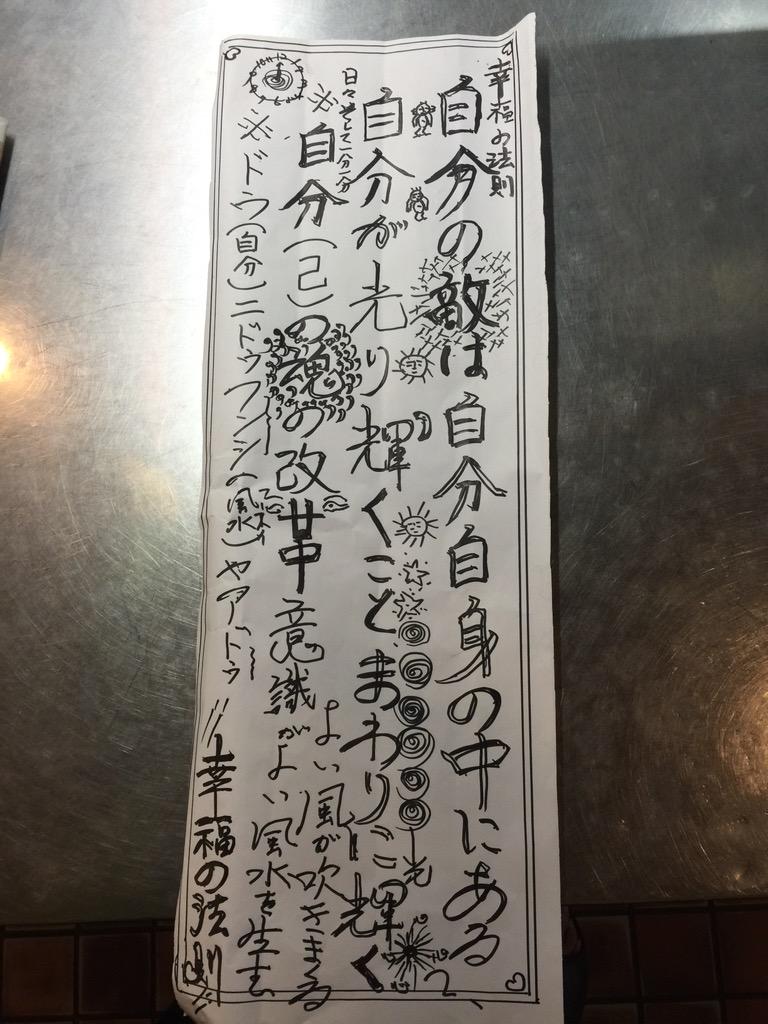 幸福の法則
自分の敵は自分自身の中にある
自分が光り輝くこと、まわりに輝く
光
日々そして一分一分
※自分(己)の魂の改革意識がよい風水を生む
よい風が吹きまる
※ドゥ(自分)ニドゥフンシの(風水)ヤアトゥ
幸福の法則